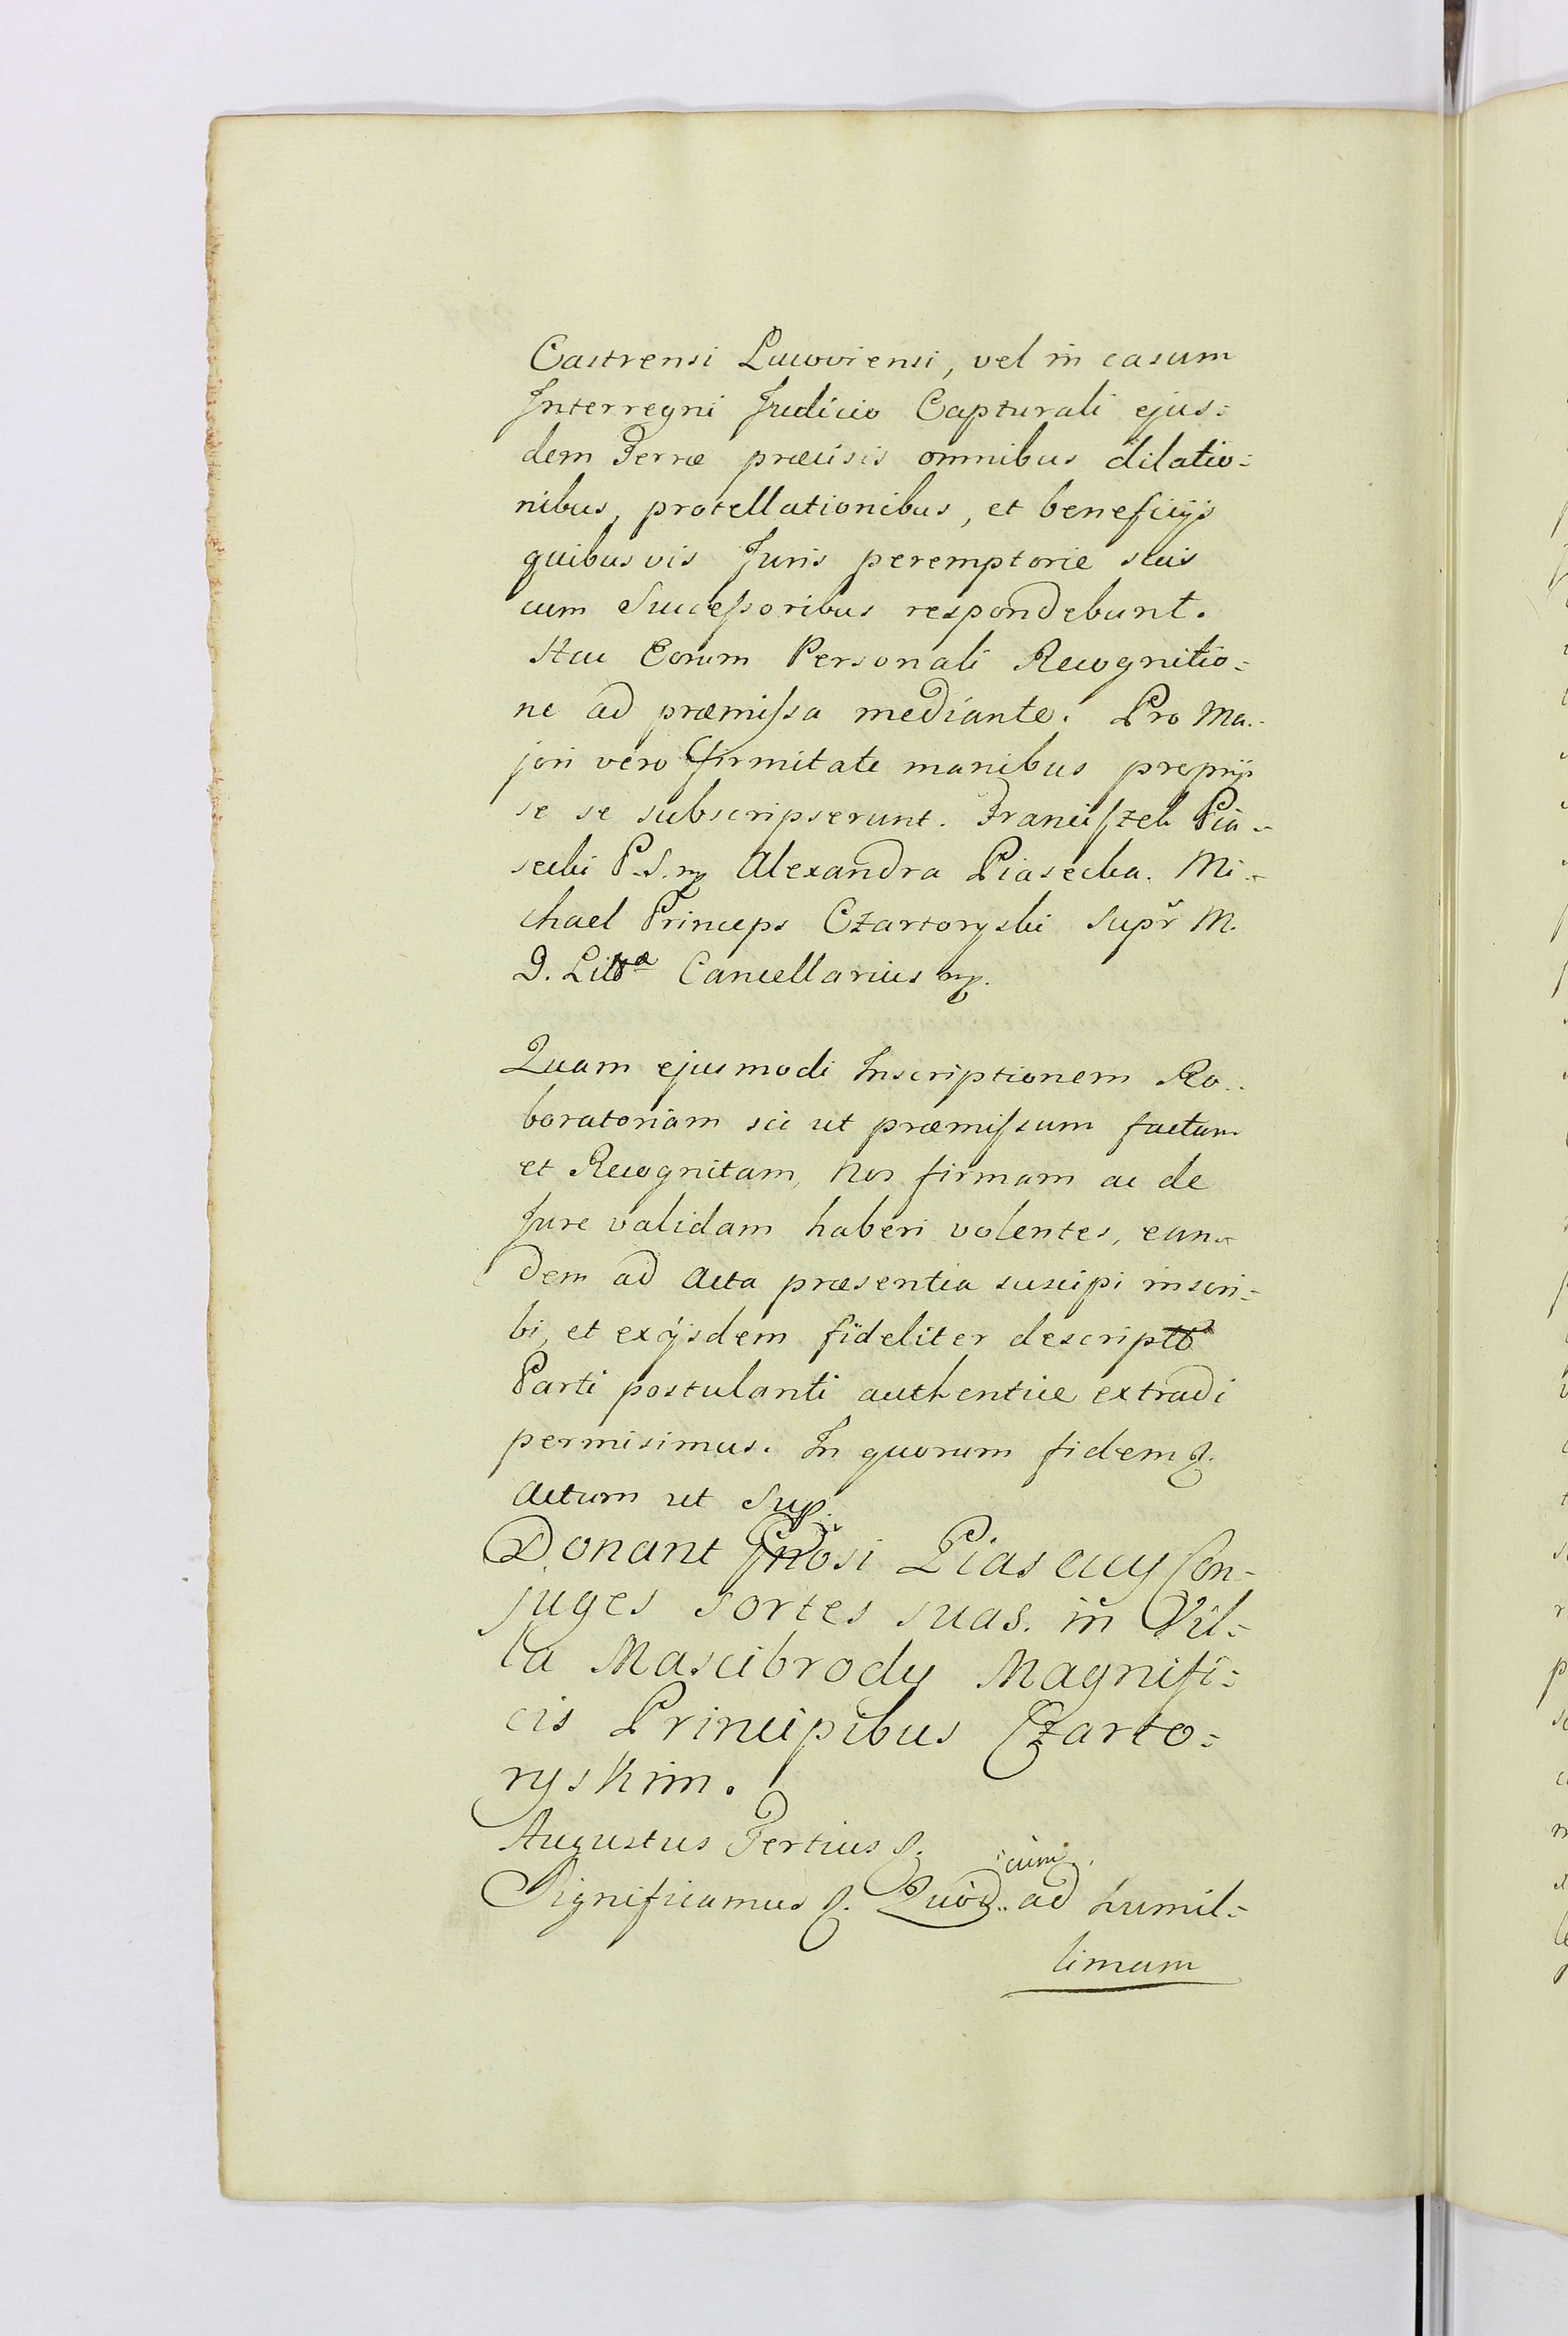 Castrensi Lucoviensi, vel in casum
Interregni Judicio Capturali ejus=
dem Terræ præcisis omnibus dilatio=
nibus, protellationibus, et beneficijs
quibusvis Juris peremptorie suis
cum Successoribus respondebunt.
Hac Eorum Personali Recognitio=
ne ad præmissa mediante. Pro Ma=
jori vero firmitate manibus proprijs
se se subscripserunt. Franciszek Pia=
secki P.S. mp Alexandra Piasecka. Mi=
chael Princeps Czartoryski Supr M.
D. Littæ Cancellarius mp.
Quam ejusmodi Inscriptionem Ro=
boratoriam sic ut præmissum factam
et Recognitam, Nos firmam ac de
Jure validam haberi volentes, ean=
dem ad Acta præsentia suscipi inscri=
bi, et exijsdem fideliter descriptb
Parti postulanti authentice extradi
permisimus. In quorum fidem &.
Actum ut Sup.
Donant Gnosi Piaseccy Con=
juges sortes suas in Vil=
la Mascibrody Magnifi=
cis Principibus Czarto=
ryskim.
Augustus Tertius &.
Significamus &. Quod cum ad humil=
limam